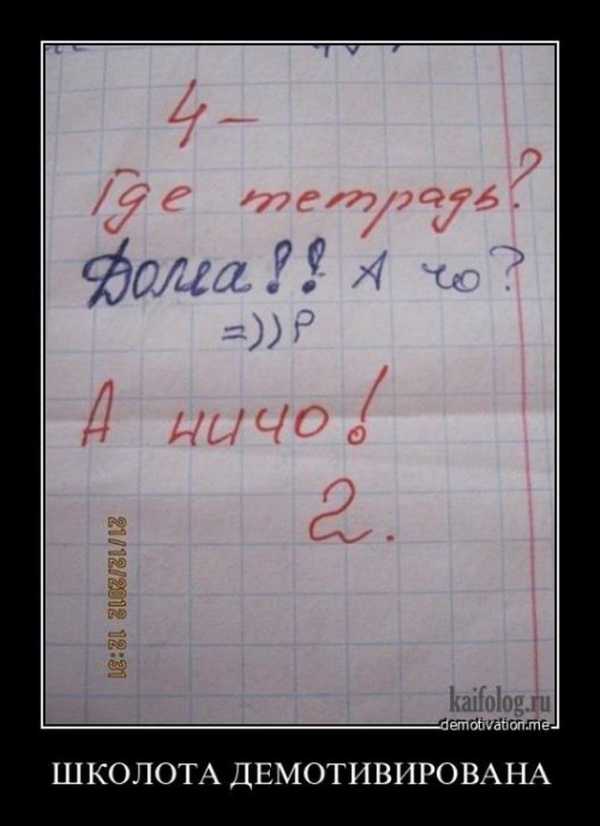 4 -
Где тетрадь?
Дома!! А чо?
=))P
А ничо!
2.
21/12/2012 12:31
kaifolog.ru
demotivation.me
ШКОЛОТА ДЕМОТИВИРОВАНА